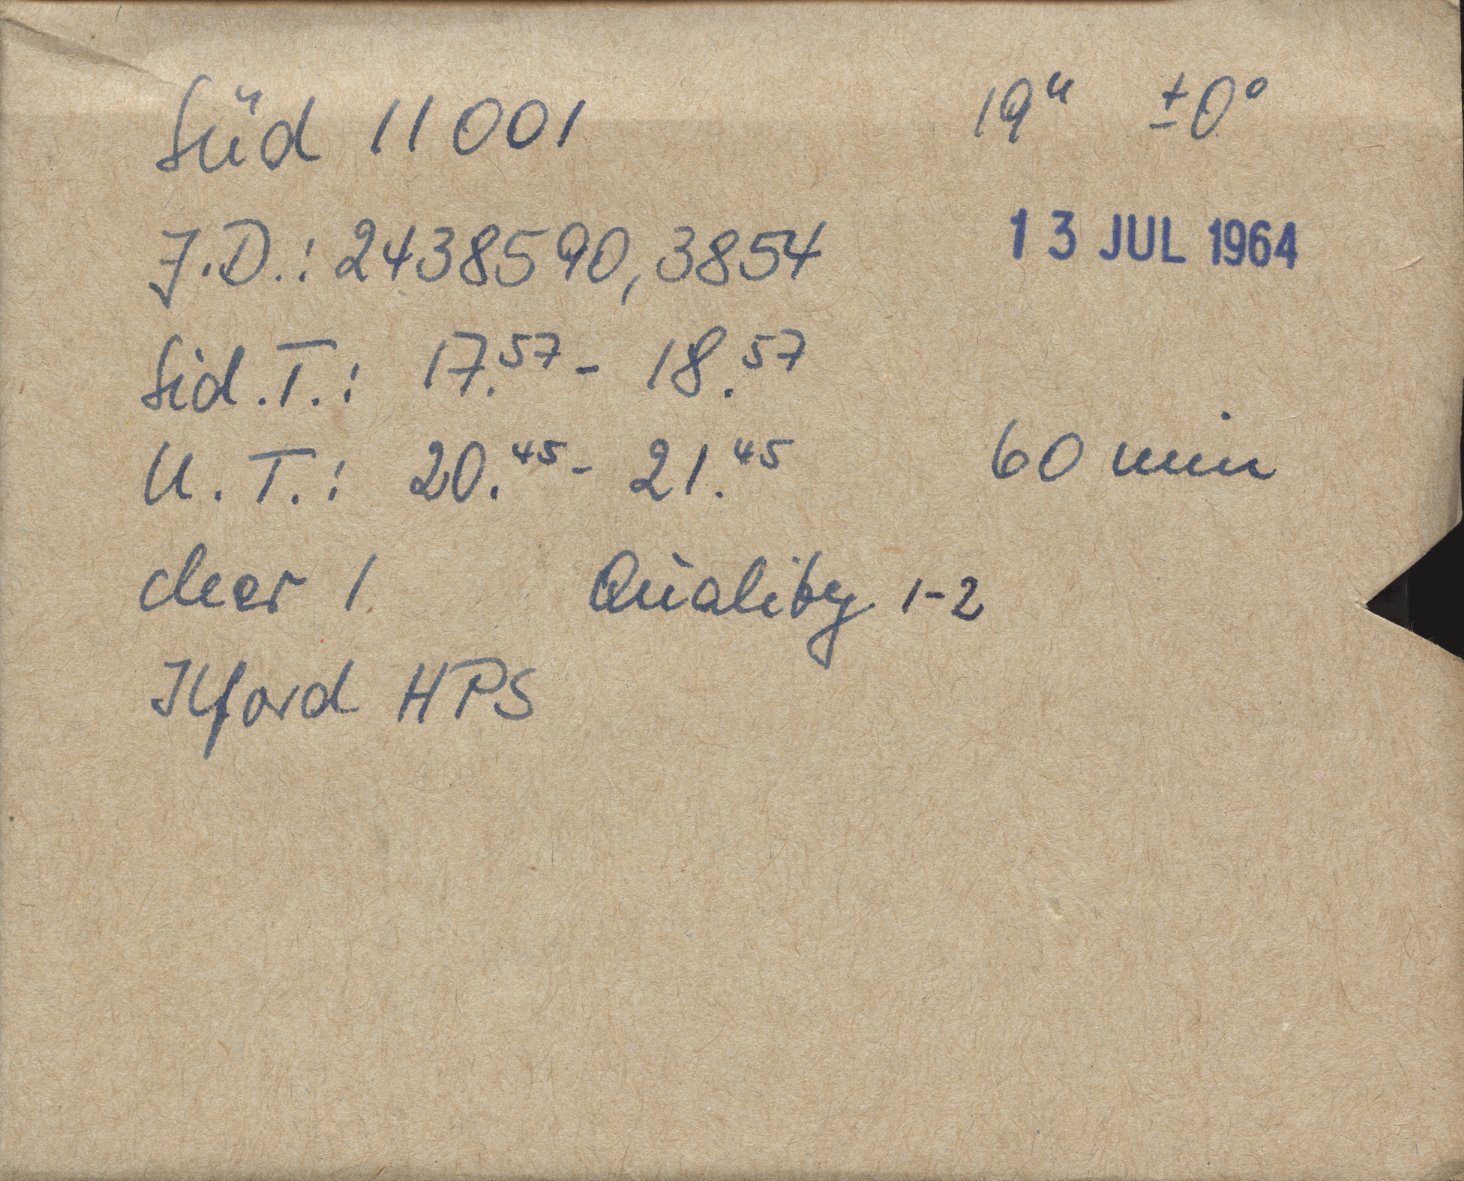 Süd 11001 19ʰ ±0°
J.D.: 2438590,3854 13 JUL 1964
Sid.T.: 17.⁵⁷ - 18.⁵⁷
U.T.: 20.⁴⁵ - 21.⁴⁵ 60 min
clear 1 Quality 1-2
Ilford HPS